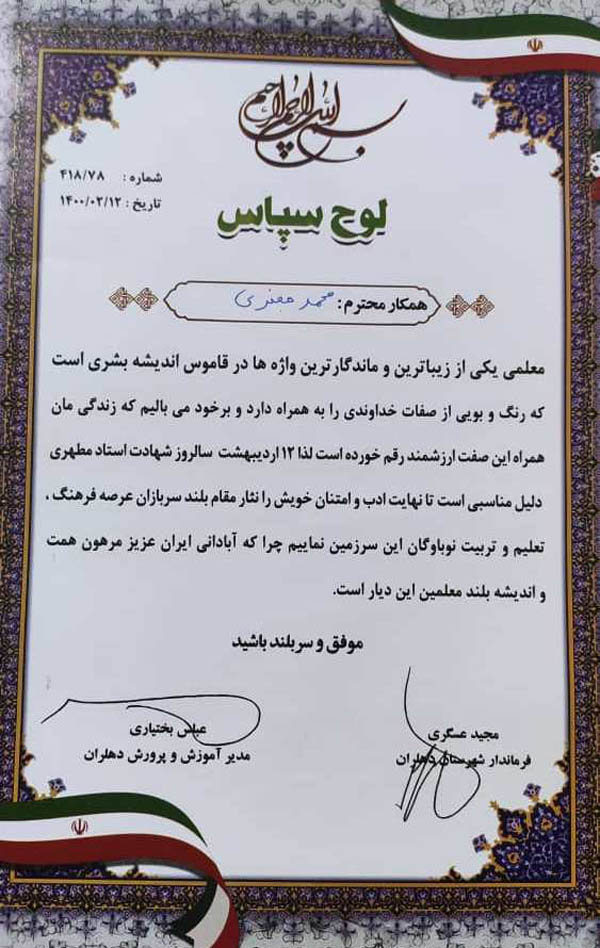 بسم الله الرحمن الرحیم
شماره : ۴۱۸/۷۸
تاریخ : ۱۴۰۰/۰۲/۱۲
لوح سپاس
همکار محترم: محمد جعفری
معلمی یکی از زیباترین و ماندگارترین واژه ها در قاموس اندیشه بشری است
که رنگ و بویی از صفات خداوندی را به همراه دارد و برخود می بالیم که زندگی مان
همراه این صفت ارزشمند رقم خورده است لذا ۱۲ اردیبهشت سالروز شهادت استاد مطهری
دلیل مناسبی است تا نهایت ادب و امتنان خویش را نثار مقام بلند سربازان عرصه فرهنگ ،
تعلیم و تربیت نوباوگان این سرزمین نماییم چرا که آبادانی ایران عزیز مرهون همت
و اندیشه بلند معلمین این دیار است.
موفق و سربلند باشید
مجید عسگری
فرماندار شهرستان دهلران
عباس بختیاری
مدیر آموزش و پرورش دهلران